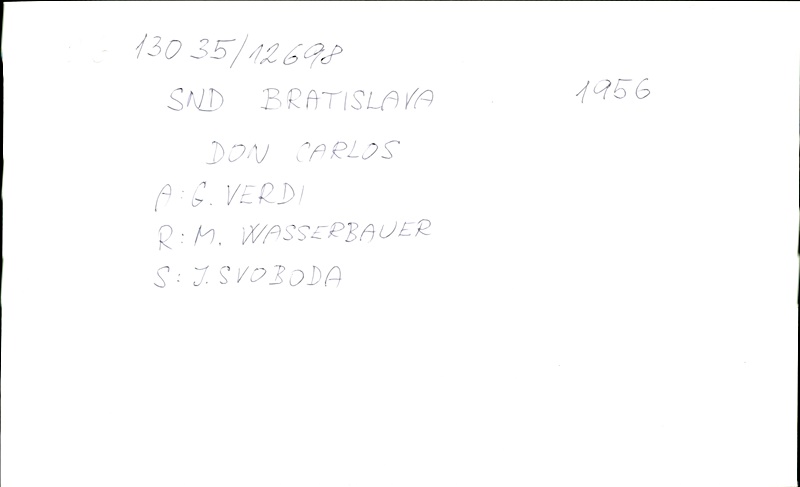 13035/12698
SND BRATISLAVA 1956
DON CARLOS
A: G. VERDI
R: M. WASSERBAUER
S: J. SVOBODA